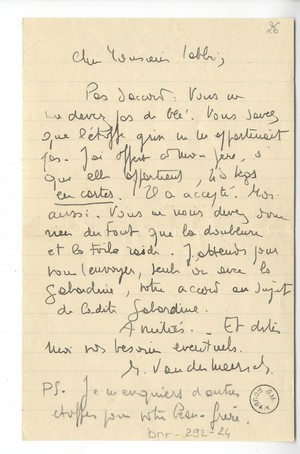 26
Cher Monsieur l'abbé,
Pas d'accord : Vous ne
me devez pas de blé. Vous savez
que l'étoffe grise ne m'appartenait
pas. J'ai offert à mon père, à
qui elle appartient, 40 kgs
en cartes. Il a accepté. Moi
aussi. Vous ne nous devez donc
rien du tout que la doublure
et la toile raide. J'attends pour
vous l'envoyer, seule ou avec la
gabardine, votre accord au sujet
de ladite gabardine.
Amitiés. - Et dites
moi vos besoins éventuels.
M. Vandermeersch
PS. Je m'enquiers d'autres
étoffes pour votre beau-frère.
bnr-292-24